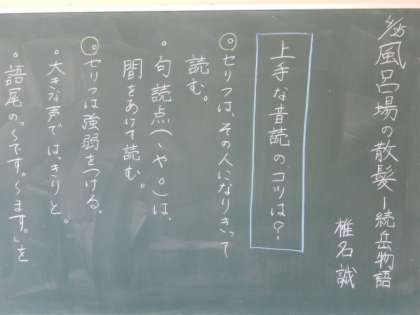 5/25 風呂場の散髪ー続岳物語
椎名誠
上手な音読のコツは?
◦セリフは、その人になりきって
読む。
◦句読点(、や。)は、
間をあけて読む。
◦セリフは強弱をつける。
◦大きな声ではっきりと。
◦語尾の「〜です。〜ます。」を